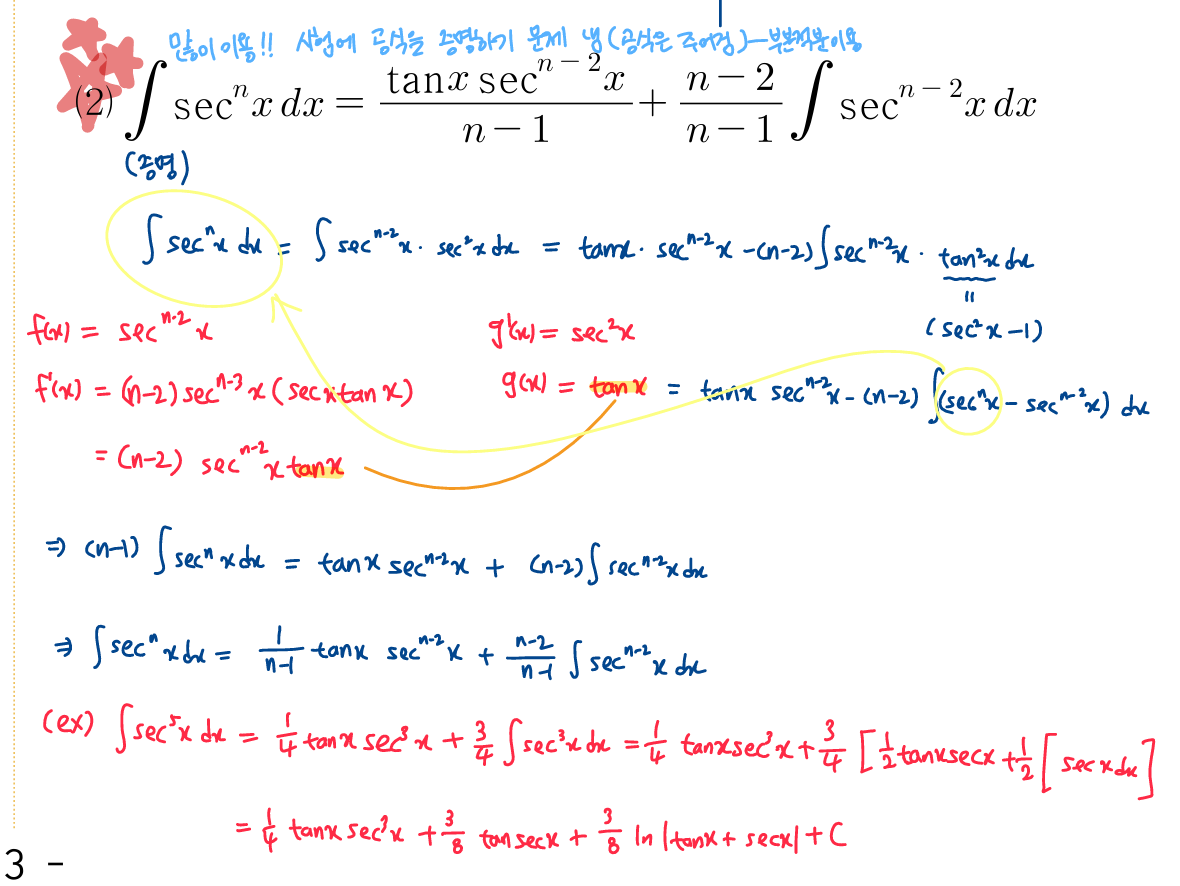 많이 이용!! 시험에 공식을 증명하기 문제 냄(공식은 주어짐)—부분적분이용
(2) ∫ secⁿx dx = (tanx secⁿ⁻²x)/(n−1) + (n−2)/(n−1) ∫ secⁿ⁻²x dx
(증명)
∫ secⁿx dx = ∫ secⁿ⁻²x · sec²x dx = tanx · secⁿ⁻²x −(n−2)∫ secⁿ⁻²x · tan²x dx
"
f(x) = secⁿ⁻²x g'(x) = sec²x (sec²x −1)
f'(x) = (n−2)secⁿ⁻³x(secx tanx) g(x) = tanx = tanx secⁿ⁻²x − (n−2) ∫(secⁿx − secⁿ⁻²x) dx
= (n−2) secⁿ⁻²x tanx
⇒ (n−1) ∫ secⁿx dx = tanx secⁿ⁻²x + (n−2)∫ secⁿ⁻²x dx
⇒ ∫ secⁿx dx = 1/(n−1) tanx secⁿ⁻²x + (n−2)/(n−1) ∫ secⁿ⁻²x dx
(ex) ∫ sec⁵x dx = 1/4 tanx sec³x + 3/4 ∫ sec³x dx = 1/4 tanx sec³x + 3/4 [1/2 tanx secx + 1/2 ∫ secx dx]
= 1/4 tanx sec³x + 3/8 tan secx + 3/8 ln|tanx + secx| + C
3 -